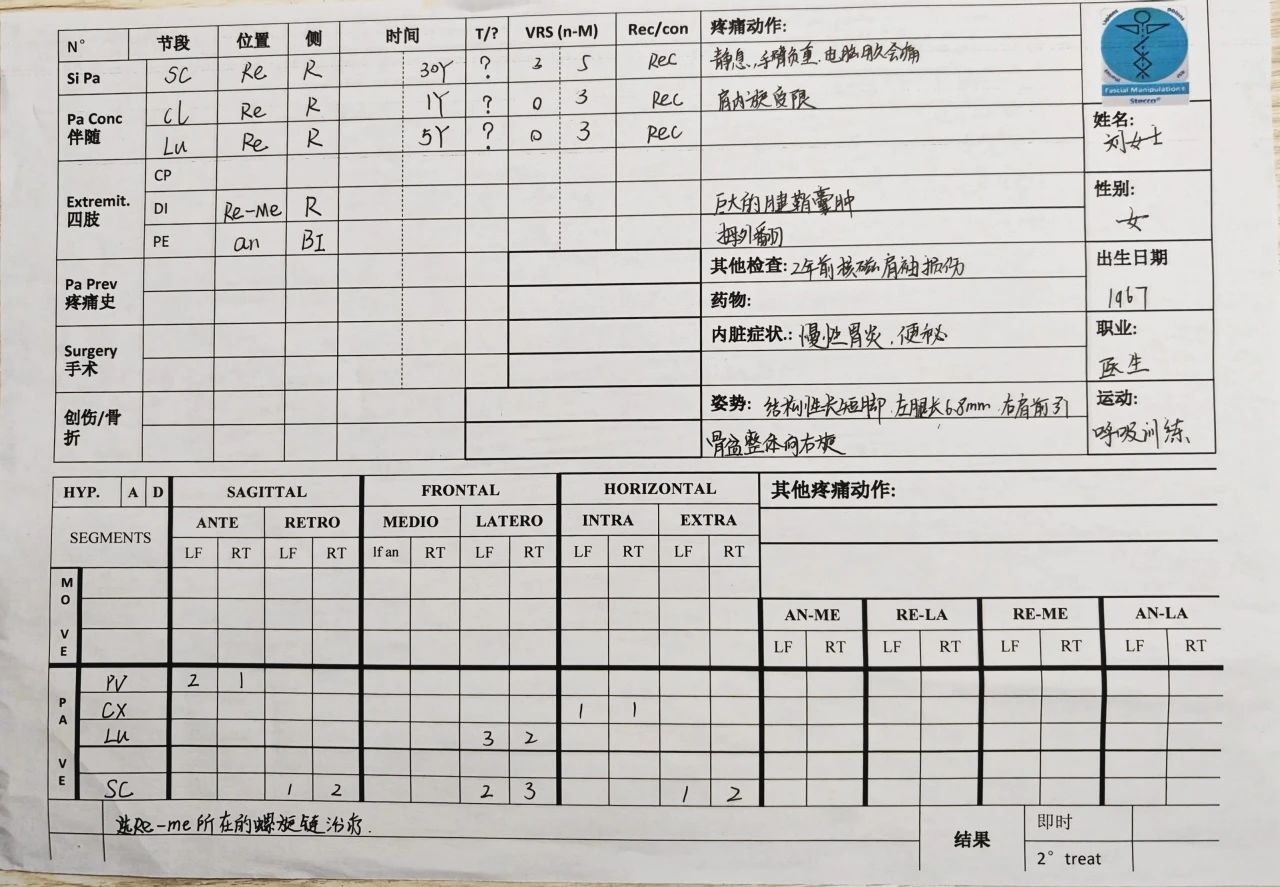 N° 节段 位置 侧 时间 T/? VRS (n-M) Rec/con 疼痛动作:
Si Pa SC Re R 30Y ? 3 5 Rec 静息,手臂负重,电脑用久会痛
Pa Conc 伴随 CL Re R 1Y ? 0 3 Rec 肩内旋受限
Lu Re R 5Y ? 0 3 Rec
Fascial Manipulation®
Stecco®
姓名:
刘女士
Extremit. 四肢
CP
DI Re-Me R 巨大的腱鞘囊肿
PE an BI 拇外翻
性别:
女
Pa Prev 疼痛史
其他检查: 2年前核磁肩袖损伤
药物:
出生日期
1967
Surgery 手术
内脏症状.: 慢性胃炎,便秘
职业:
医生
创伤/骨折
姿势: 结构性长短脚,左腿长6.8mm,右肩前引
骨盆整体向右旋
运动:
呼吸训练
HYP. A D SAGITTAL FRONTAL HORIZONTAL 其他疼痛动作:
SEGMENTS ANTE RETRO MEDIO LATERO INTRA EXTRA
LF RT LF RT lf an RT LF RT LF RT LF RT
MO VE
AN-ME RE-LA RE-ME AN-LA
LF RT LF RT LF RT LF RT
PA VE
PV 2 1
CX 1 1
Lu 3 2
SC 1 2 2 3 1 2
选Re-me所在的螺旋链治疗.
结果
即时
2° treat